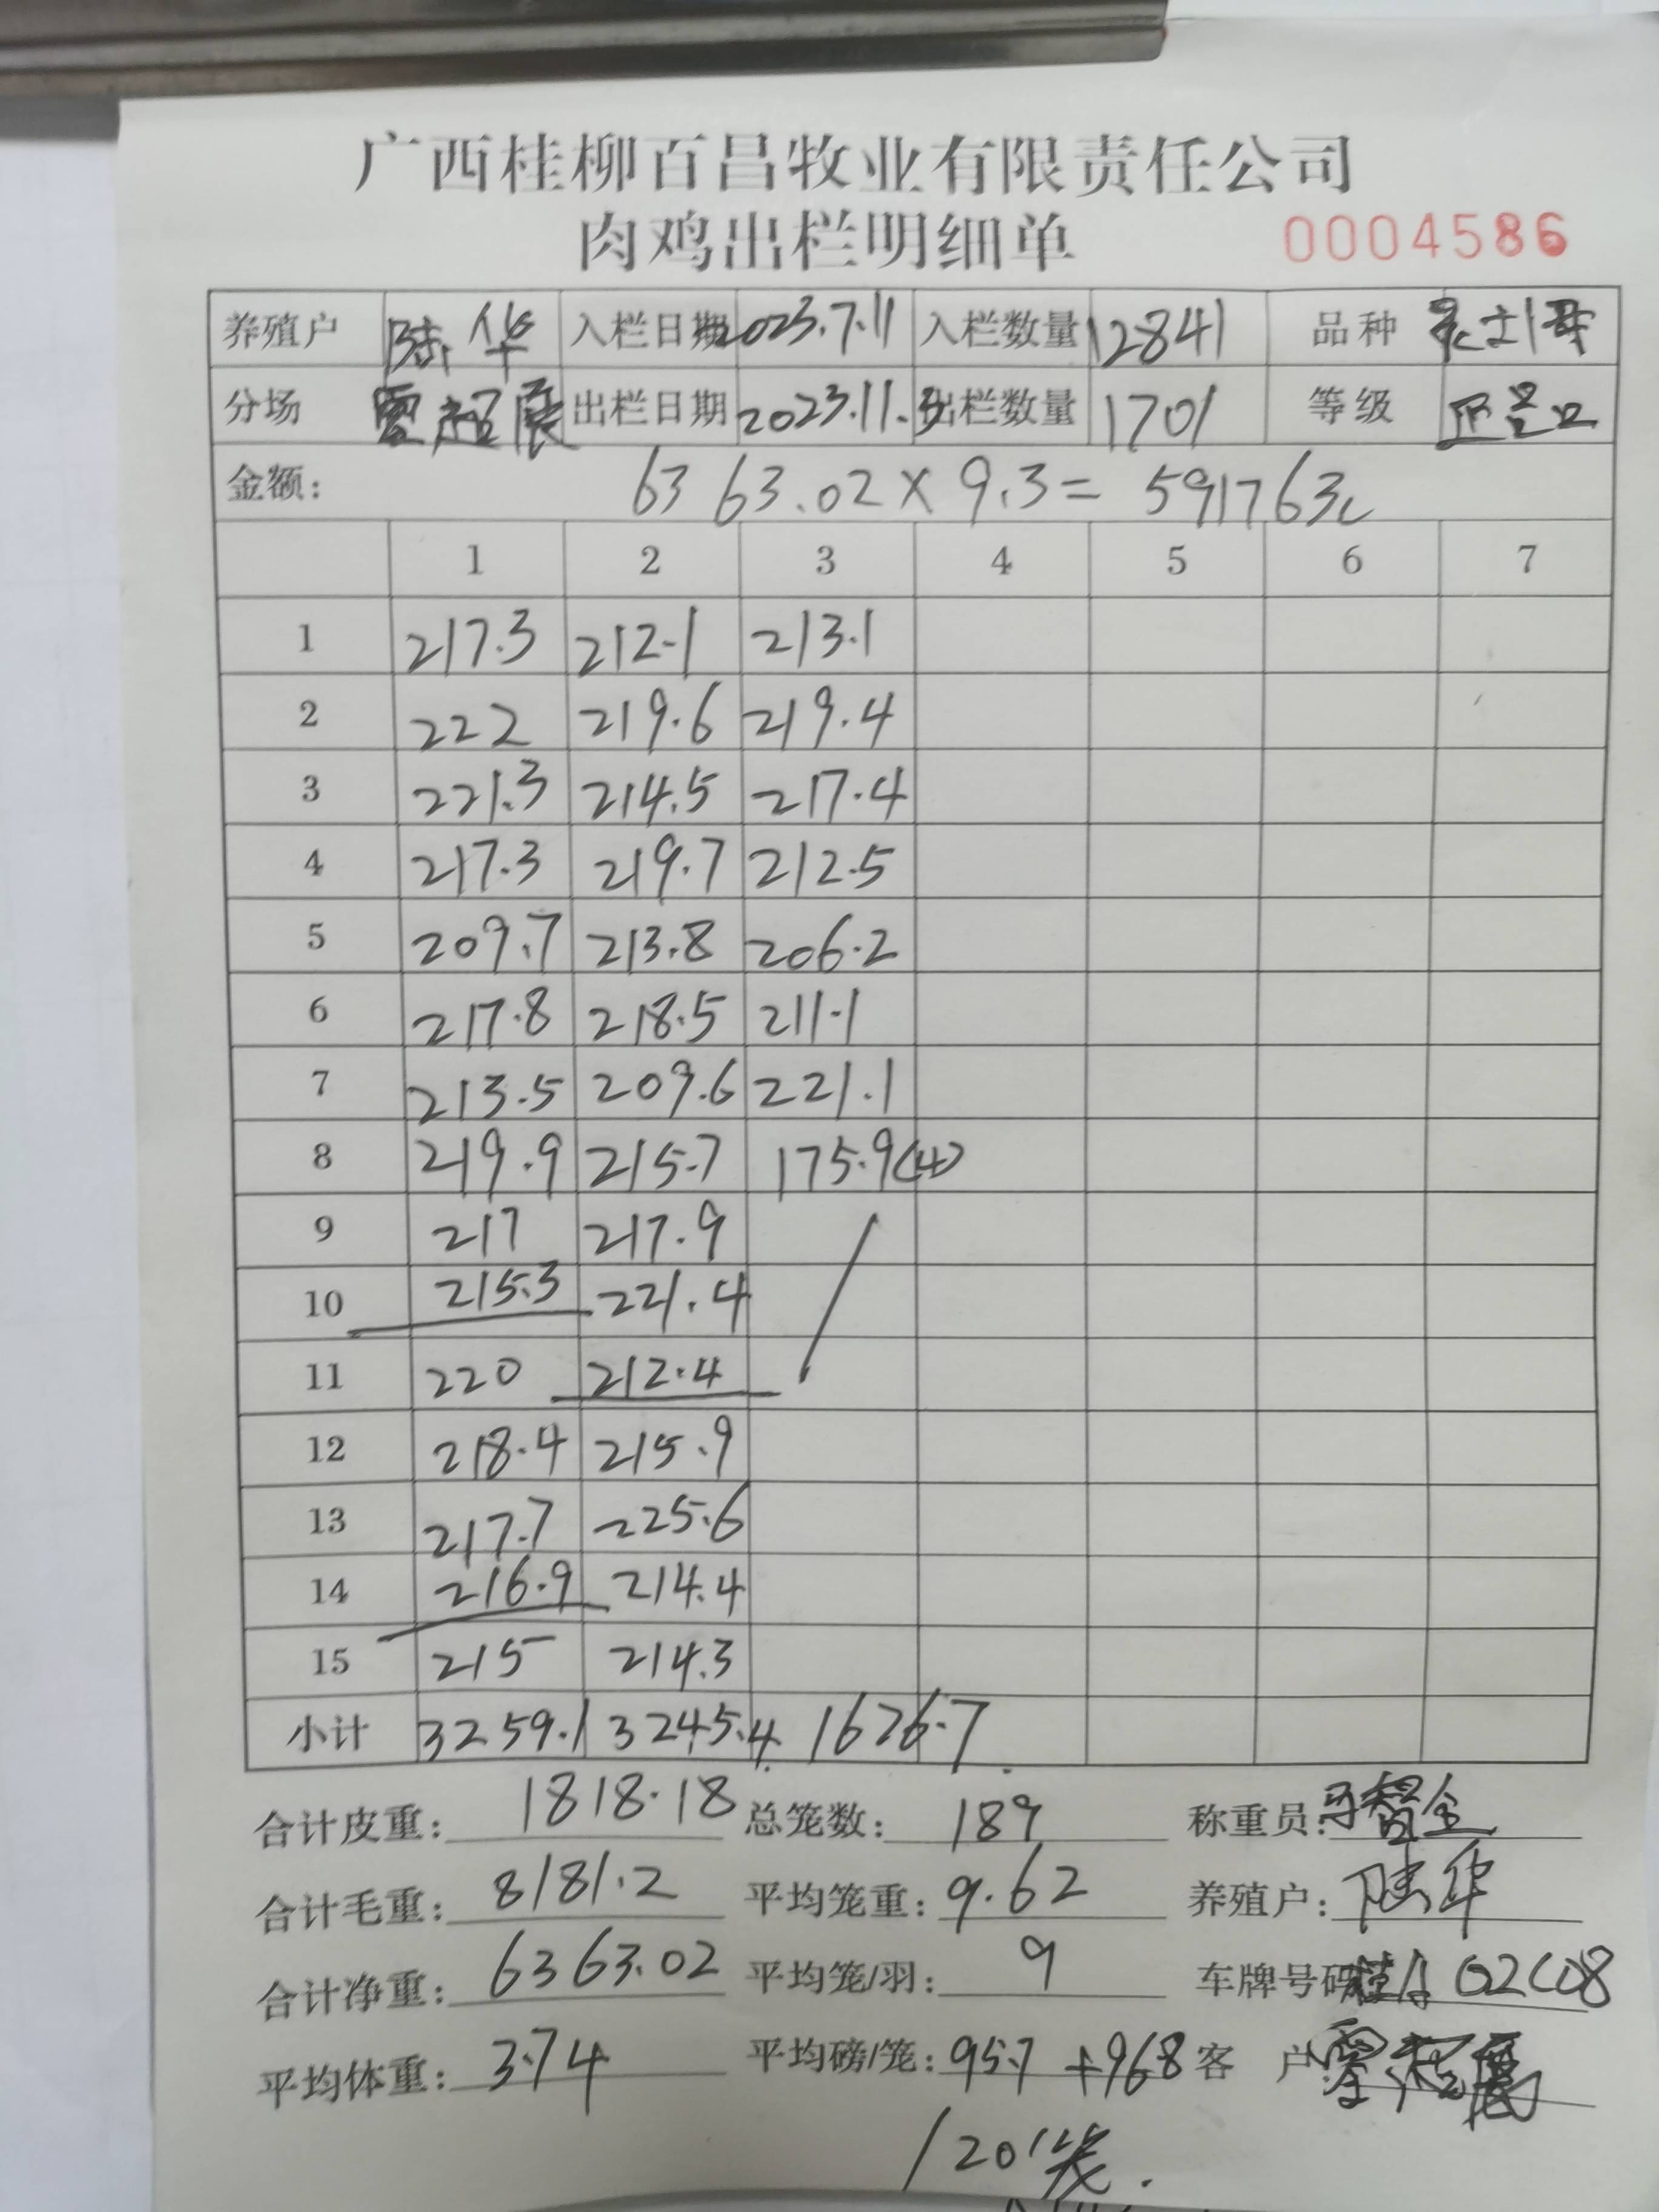 广西桂柳百昌牧业有限责任公司
肉鸡出栏明细单 0004586
养殖户 陆华 入栏日期 2023.7.11 入栏数量 12841 品种
分场 出栏日期 2023.11.3 出栏数量 1701 等级
金额: 6363.02×9.3=59176元
1 2 3 4 5 6 7
1 217.3 212.1 213.1
2 222 219.6 219.4
3 221.3 214.5 217.4
4 217.3 219.7 212.5
5 209.7 213.8 206.2
6 217.8 218.5 211.1
7 213.5 209.6 221.1
8 219.9 215.7 175.9(4)
9 217 217.9
10 215.3 221.4
11 220 212.4
12 218.4 215.9
13 217.7 225.6
14 216.9 214.4
15 215 214.3
小计 3259.1 3245.4 1676.7
合计皮重: 1818.18 总笼数: 189 称重员:
合计毛重: 8181.2 平均笼重: 9.62 养殖户: 陆华
合计净重: 6363.02 平均笼/羽: 9 车牌号码: 02C08
平均体重: 3.74 平均磅/笼: 957+968 客户